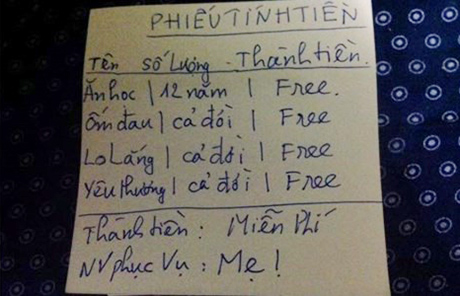 PHIẾU TÍNH TIỀN
Tên số lượng - Thành tiền.
Ăn học | 12 năm | Free.
ốm đau | cả đời | Free
Lo Lắng | cả đời | Free
Yêu thương | cả đời | Free
Thành tiền : Miễn Phí
NV phục Vụ : Mẹ !